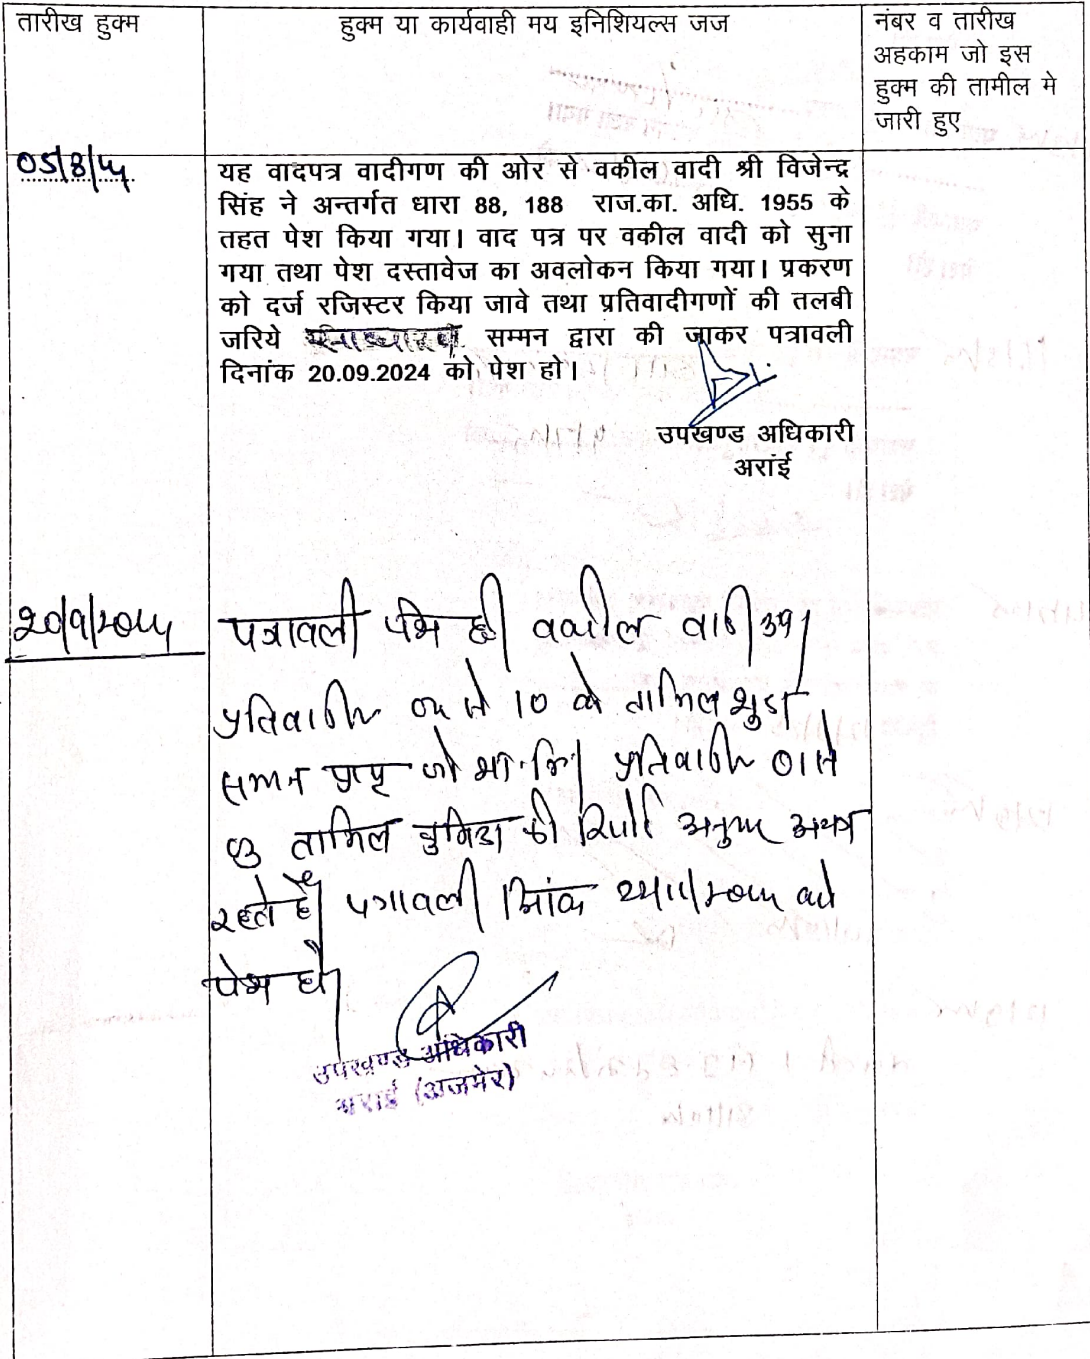 तारीख हुक्म
हुक्म या कार्यवाही मय इनिशियल्स जज
नंबर व तारीख
अहकाम जो इस
हुक्म की तामील मे
जारी हुए
05/8/24
यह वादपत्र वादीगण की ओर से वकील वादी श्री विजेन्द्र
सिंह ने अन्तर्गत धारा 88, 188 राज.का. अधि. 1955 के
तहत पेश किया गया। वाद पत्र पर वकील वादी को सुना
गया तथा पेश दस्तावेज का अवलोकन किया गया। प्रकरण
को दर्ज रजिस्टर किया जावे तथा प्रतिवादीगणों की तलबी
जरिये सम्मन द्वारा की जाकर पत्रावली
दिनांक 20.09.2024 को पेश हो।
उपखण्ड अधिकारी
अरांई
20/9/2024
पत्रावली पेश हुई। वकील वादी उप।
प्रतिवादी से 10 के तामिल शुदा
सम्मन प्राप्त जो शा.मि.। प्रतिवादी 01 से
03 तामिल कुनिंदा की रिपोर्ट अनुसार अन्यत्र
रहते है। पत्रावली दिनांक को
पेश हो।
उपखण्ड अधिकारी
अरांई (अजमेर)